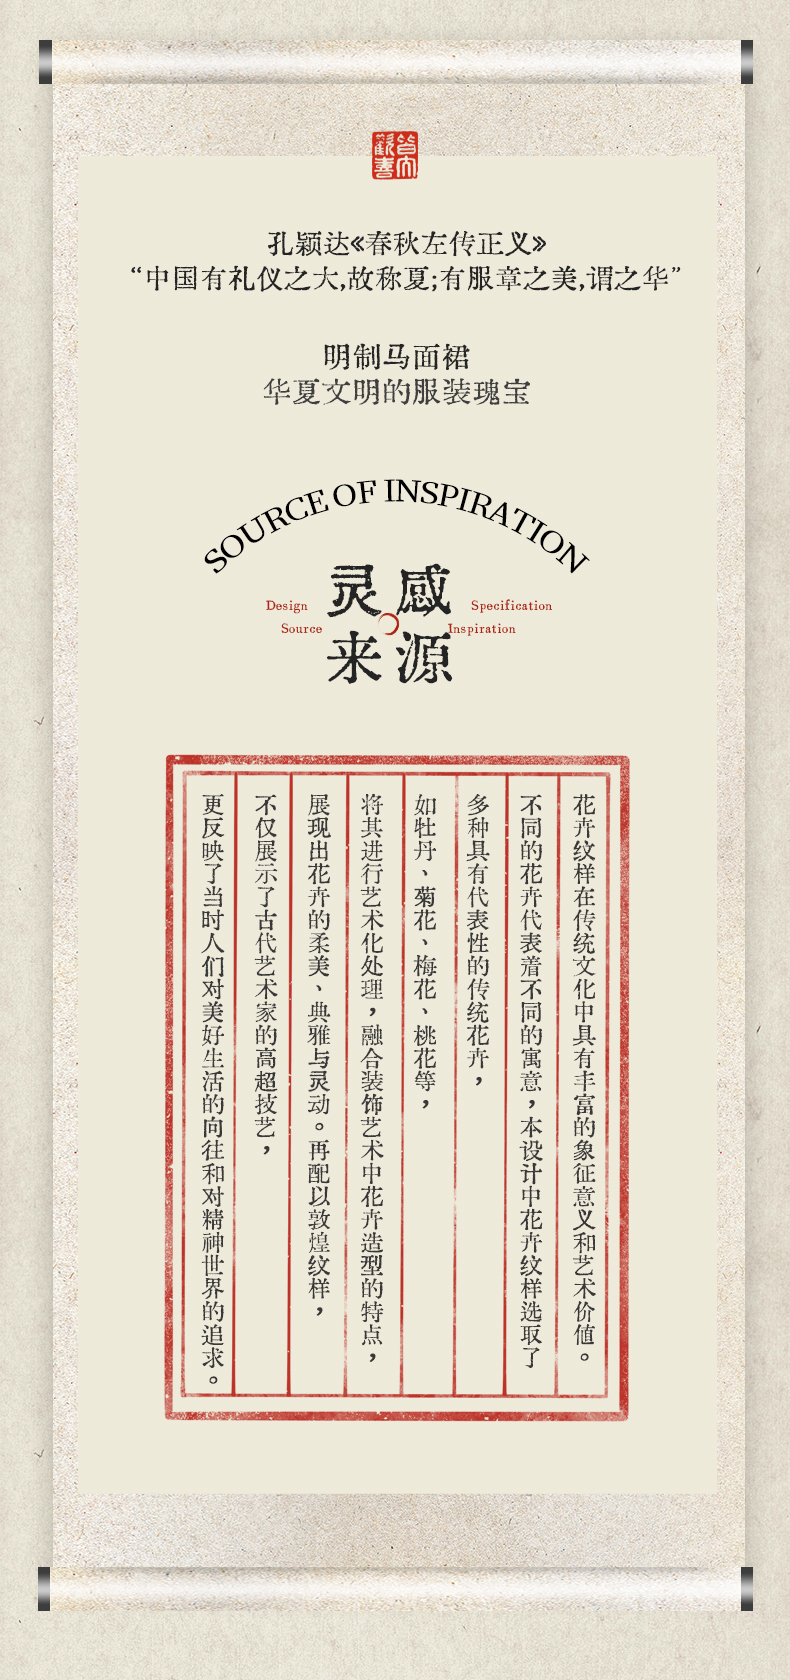 孔颖达《春秋左传正义》
“中国有礼仪之大,故称夏;有服章之美,谓之华”
明制马面裙
华夏文明的服装瑰宝
SOURCE OF INSPIRATION
灵感
来源
Design
Specification
Source
Inspiration
花卉纹样在传统文化中具有丰富的象征意义和艺术价值。
不同的花卉代表着不同的寓意，本设计中花卉纹样选取了
多种具有代表性的传统花卉，
如牡丹、菊花、梅花、桃花等，
将其进行艺术化处理，融合装饰艺术中花卉造型的特点，
展现出花卉的柔美、典雅与灵动。再配以敦煌纹样，
不仅展示了古代艺术家的高超技艺，
更反映了当时人们对美好生活的向往和对精神世界的追求。